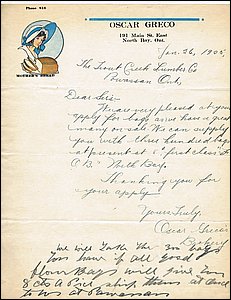 Phone 958
OSCAR GRECO
191 Main St. East
North Bay, Ont.
MOTHER'S BREAD
Jan. 26,
The Trout Creek Lumber Co
Powassan
Ont.
Dear Sirs:
We are very pleased at your
apply for bags as we have a great
many on sale. We can supply
you with three hundred bags
at present at first class
North Bay.
Thanking you for
your apply
Yours Truly,
Oscar Greco
Bakery
We will take the 300 bags
you have if all good
flour Bags will give you
8 cts a piece ship them at once
to us at Powassan